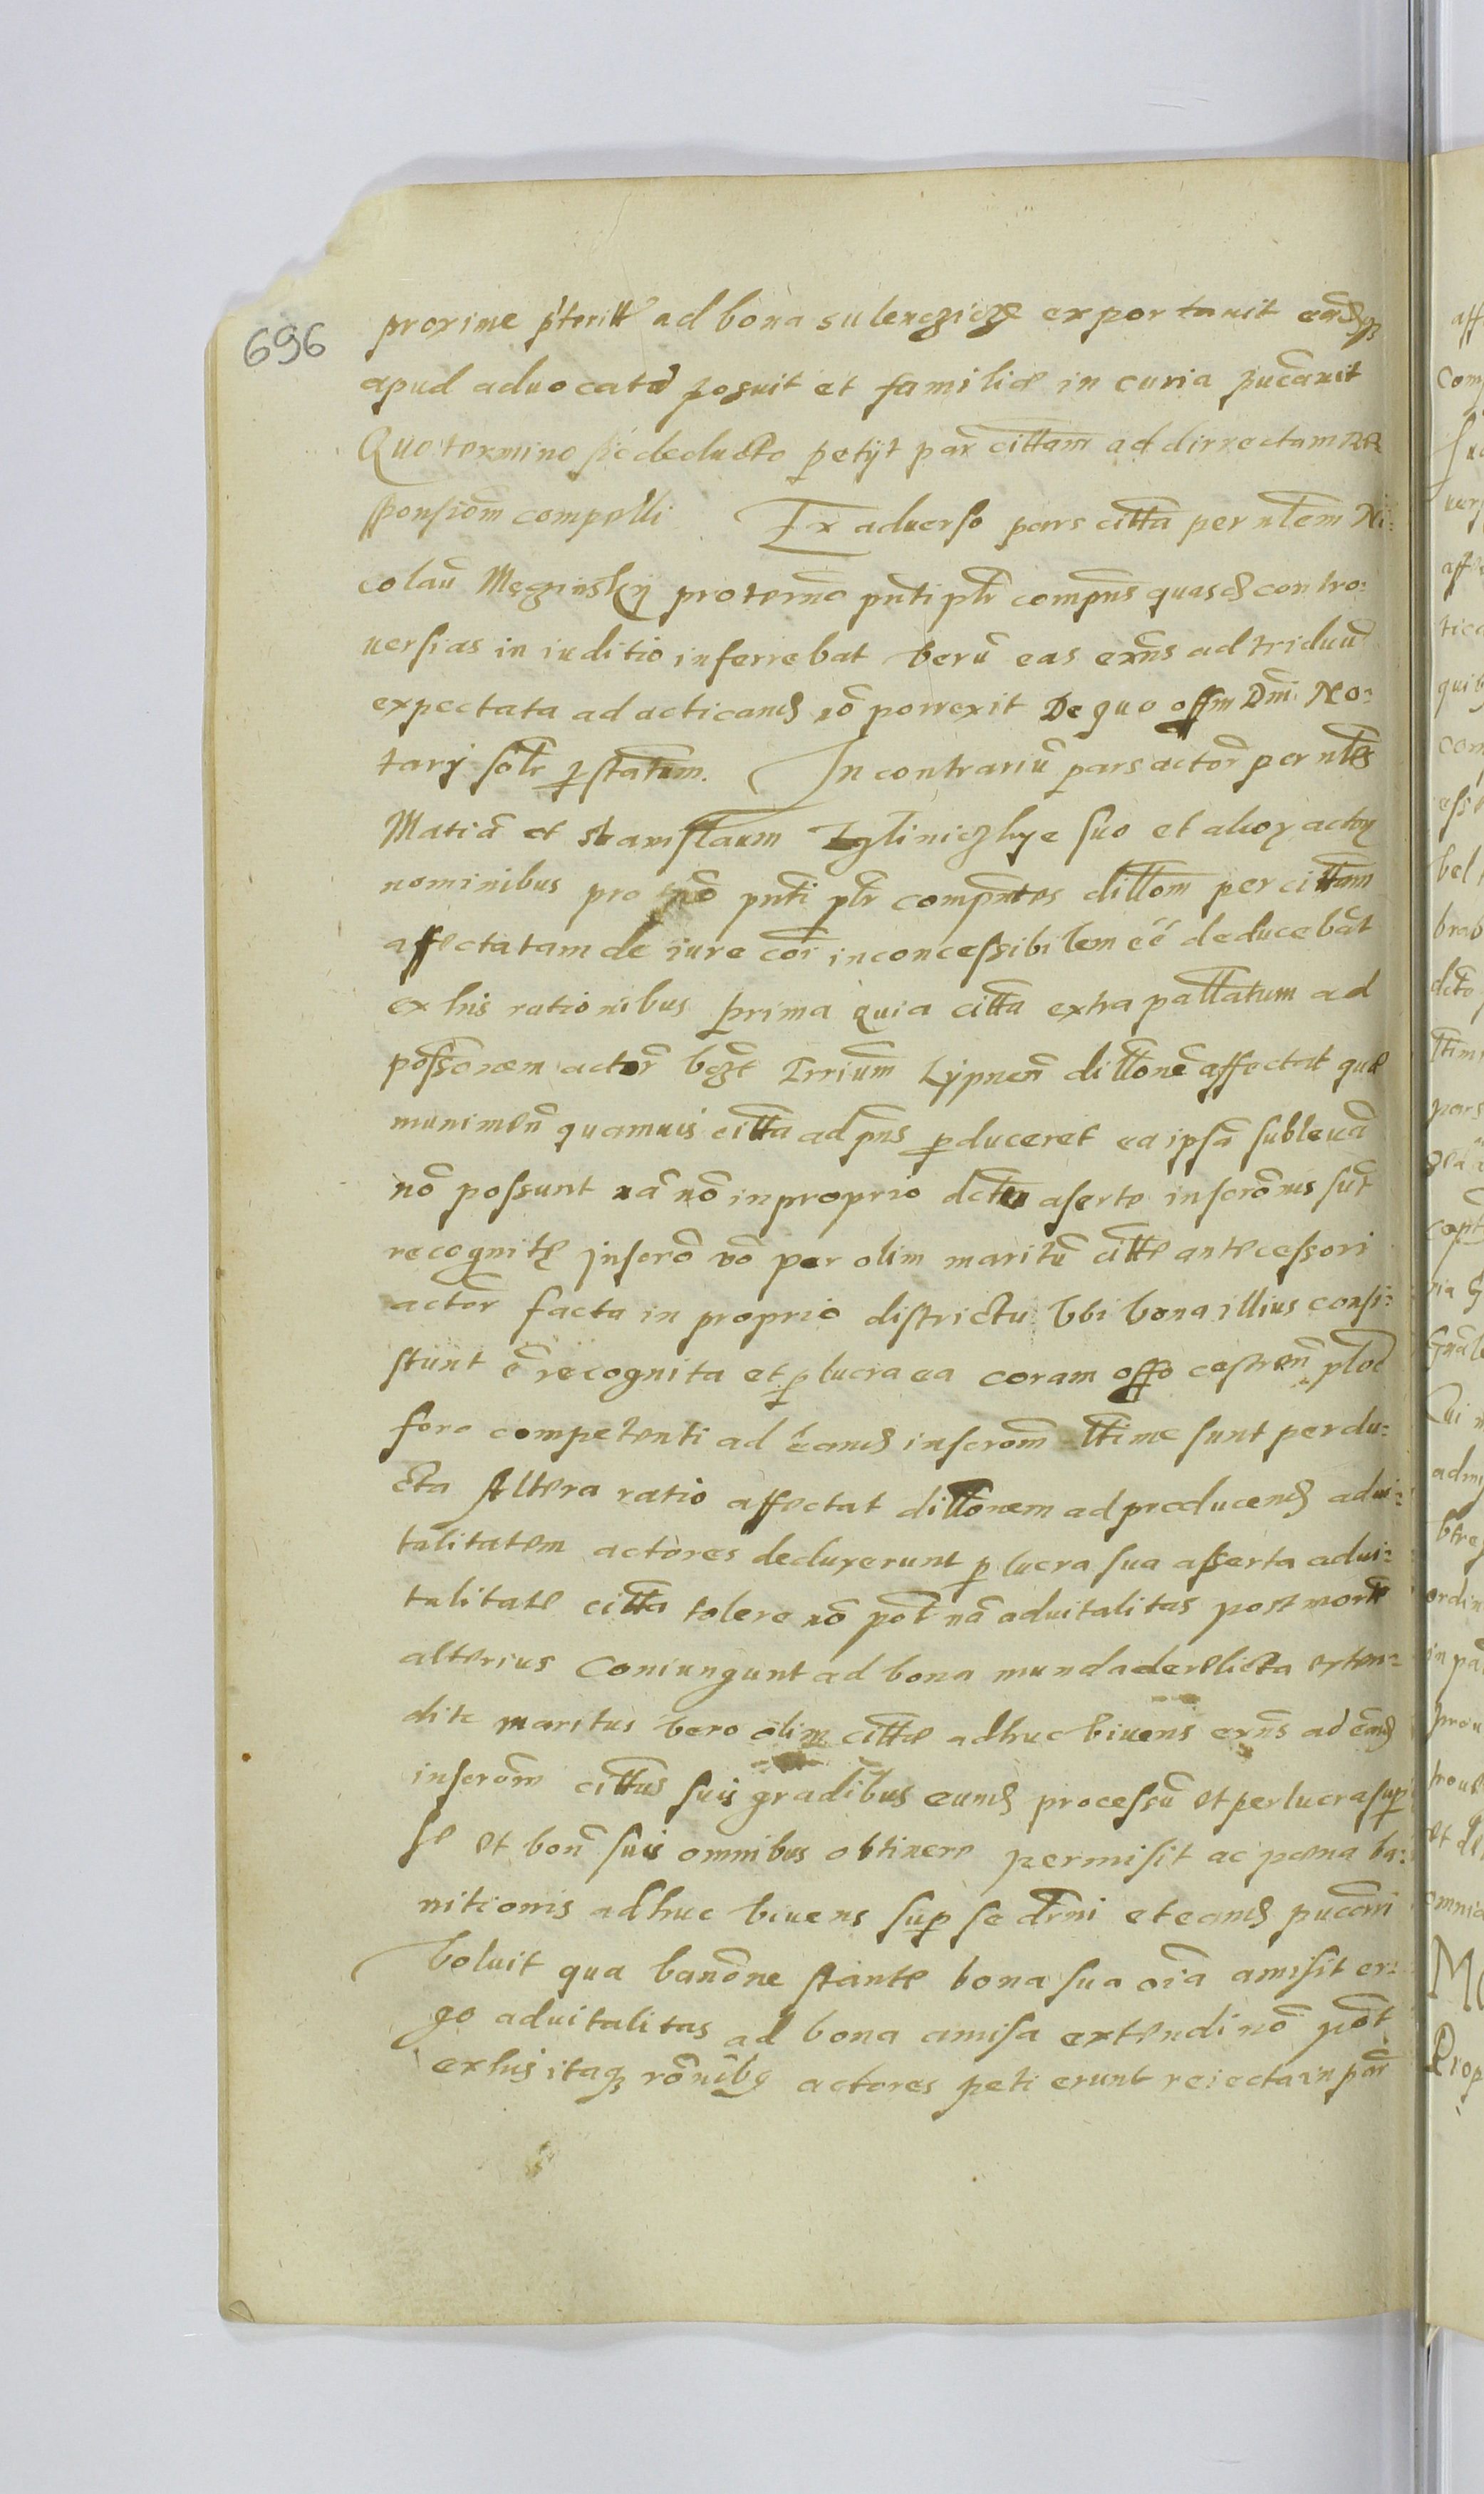 696
proxime pͥteritt ad bona sulencziczę exportauit eādqꝫ
apud aduocatū posuit et familiæ in curia pucāuit
Quo termino sic deducto petijt par̄ cittam̄ ad dirrectam re
sponsiom̄ compelli Ex aduerso pars citta per nłem Ni:
colaū Męgzinskÿ pro termō pn̄ti pltr compn̄s quasd contro:
uersias in iuditio inferrebat verū eas exn̄s ad triduū
expectata ad acticand nō porrexit De quo offm Dm̄ No:
tarÿ sołr ꝑstatum. In contrariū pars actor̄ per nłes
Matiā et stanislaum Igliniczkye suo et alioꝝ actoꝝ
nominibus pro tnō pn̄ti pltr compn̄tes dillom̄ per cittam
affectatam de iure cōi inconcessibilem ēē deducebāt
ex his rationibus prima quia citta extra pallatum ad
possōnem actor̄ Trrium̄ Lÿpnen̄ dillonē affectat quæ
munimen̄ quamuis citta ad pn̄s ꝑduceret ea ipsā subleuā
nō possunt nā nō in proprio aserte inscrōnes sūt
recognitę inscrō vō per olim maritū cittæ antecessori
actor̄ facta in proprio districtu Vbi bona illius consi:
stunt ē recognita et ꝑ lucra ea coram offo castren̄ płoc̄
foro competenti ad eand inscrom̄ łtime sunt perdu:
cta Altera ratio affectat dillonem ad producend adui:
talitatem actores deduxerunt ꝑ lucra sua asserta adui:
talitate citta tolere nō pōt nā aduitalitas post mortē
alterius coniungunt ad bona munda derelicta exten:
dite maritus vero olim cittæ adhuc viuens exn̄s ad eand
inscrom̄ cittus suis gradibus eund processū et per lucra sup
se et bon̄ suis omnibus obtinere permisit ac pæna ba:
nitionis adhuc viuens sup se dr̄ni et eand pucāri
Voluit qua banōne stante bona sua oīa amisit er:
go aduitalitas ad bona amisa extendi nō pōt
ex his itaqꝫ rōnibꝫ actores petierunt reiecta in par̄